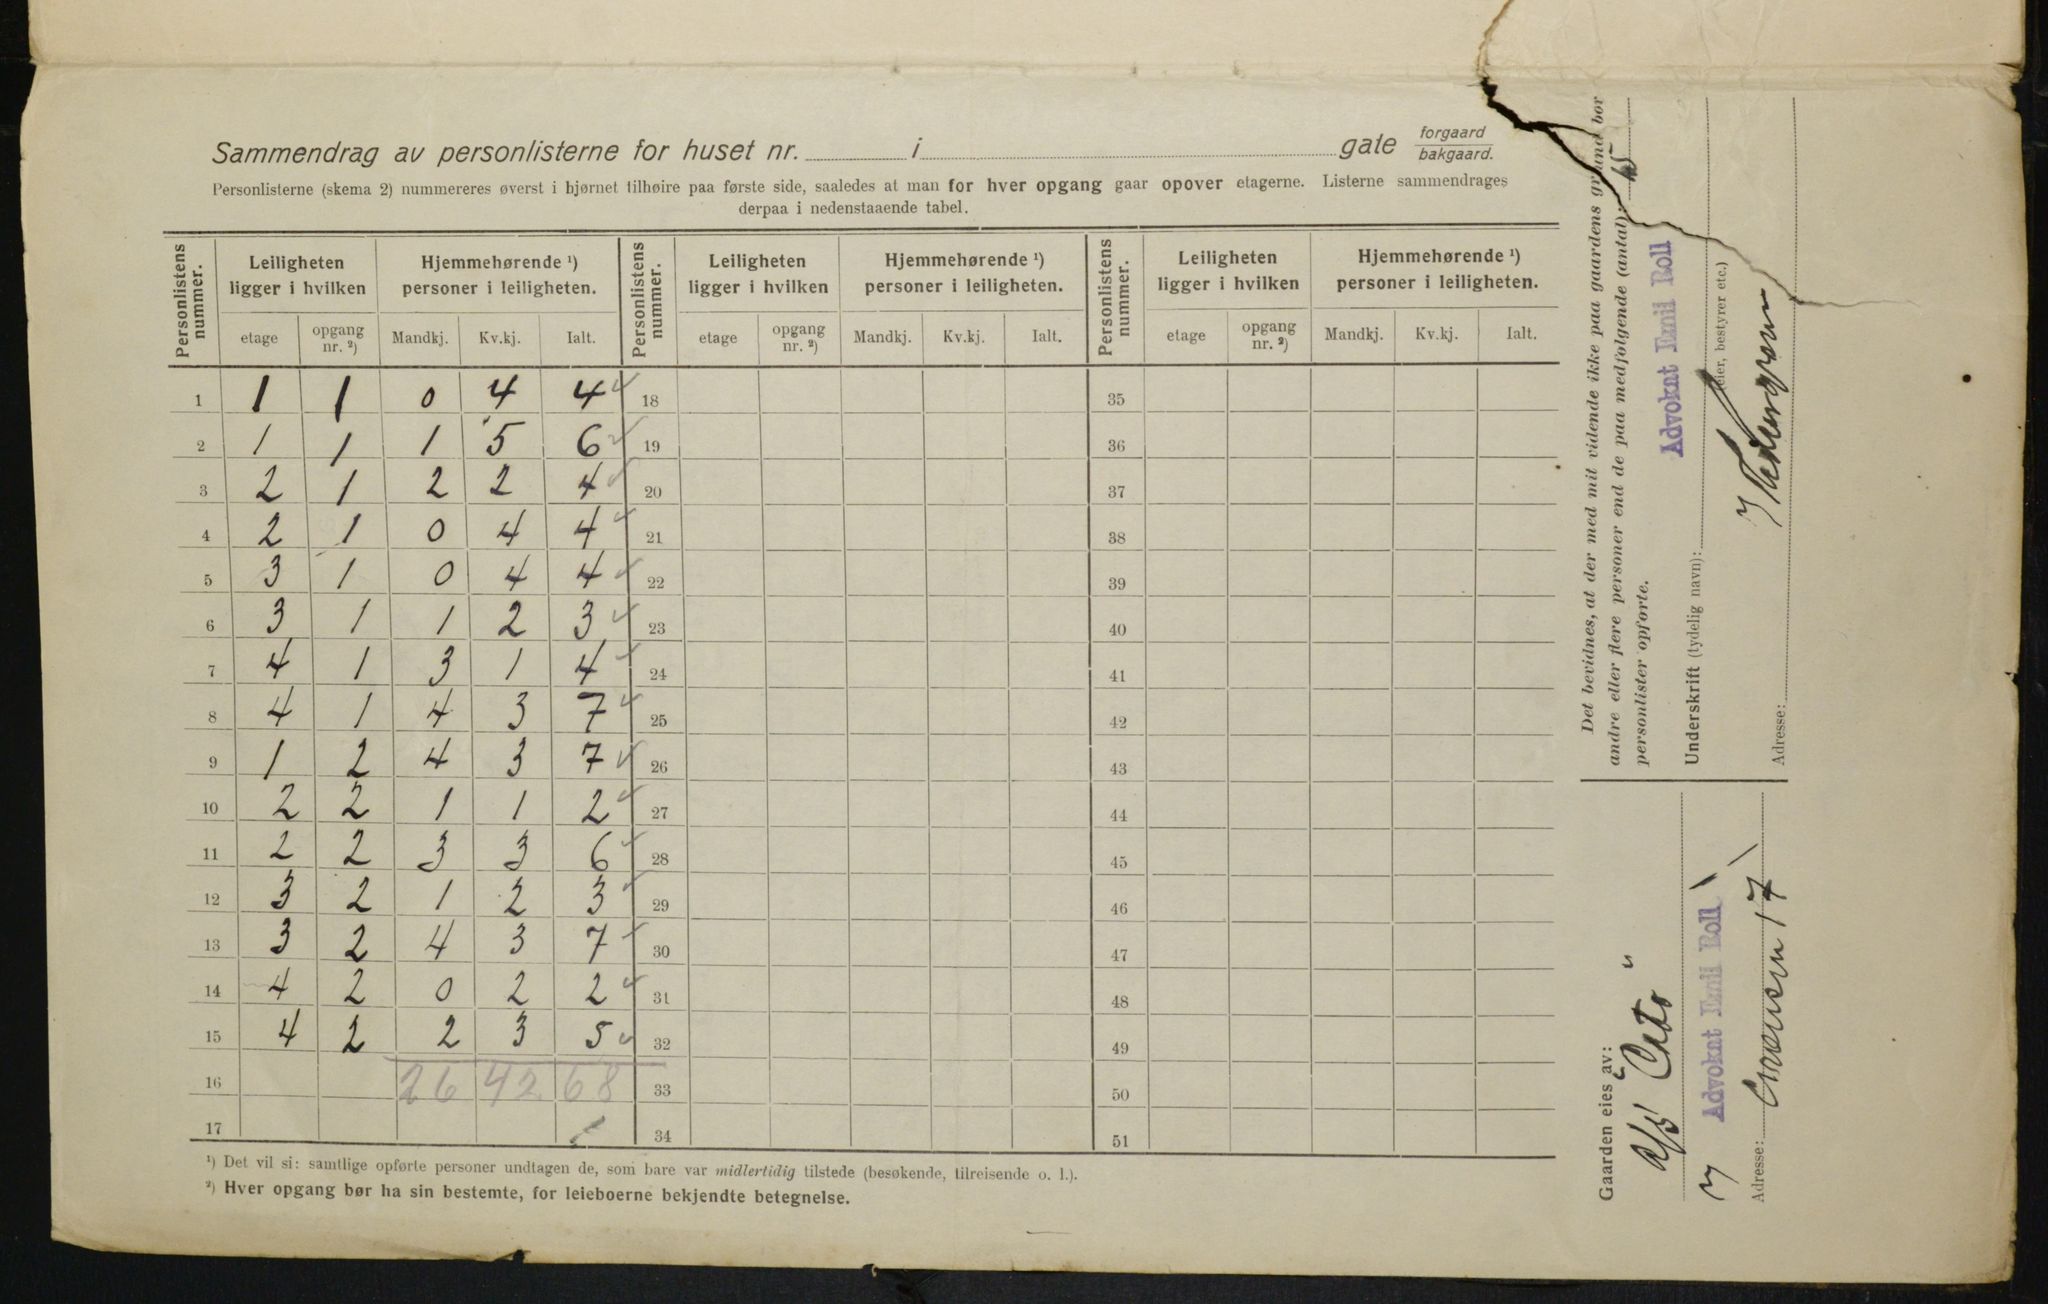 Sammendrag av personlisterne for huset nr. i gate forgaard bakgaard.
Personlisterne (skema 2) nummereres øverst i hjørnet tilhøire paa første side, saaledes at man for hver opgang gaar opover etagerne. Listerne sammendrages
derpaa i nedenstaaende tabel.
Personlistens nummer. Leiligheten ligger i hvilken Hjemmehørende ¹) personer i leiligheten. Personlistens nummer. Leiligheten ligger i hvilken Hjemmehørende ¹) personer i leiligheten. Personlistens nummer. Leiligheten ligger i hvilken Hjemmehørende ¹) personer i leiligheten.
etage opgang nr. ²) Mandkj. Kv.kj. Ialt. etage opgang nr. ²) Mandkj. Kv.kj. Ialt. etage opgang nr. ²) Mandkj. Kv.kj. Ialt.
1 1 1 0 4 4 18 35
2 1 1 1 5 6 19 36
3 2 1 2 2 4 20 37
4 2 1 0 4 4 21 38
5 3 1 0 4 4 22 39
6 3 1 1 2 3 23 40
7 4 1 3 1 4 24 41
8 4 1 4 3 7 25 42
9 1 2 4 3 7 26 43
10 2 2 1 1 2 27 44
11 2 2 3 3 6 28 45
12 3 2 1 2 3 29 46
13 3 2 4 3 7 30 47
14 4 2 0 2 2 31 48
15 4 2 2 3 5 32 49
16 26 42 68 33 50
17 34 51
¹) Det vil si: samtlige opførte personer undtagen de, som bare var midlertidig tilstede (besøkende, tilreisende o. l.).
²) Hver opgang bør ha sin bestemte, for leieboerne bekjendte betegnelse.
Det bevidnes, at der med mit vidende ikke paa gaardens grund bor
andre eller flere personer end de paa medfølgende (antal): 15
personlister opførte.
Advokat Emil Roll
Underskrift (tydelig navn): eier, bestyrer etc.)
Adresse:
Gaarden eies av:
A/S
Advokat Emil Roll
Adresse: 17